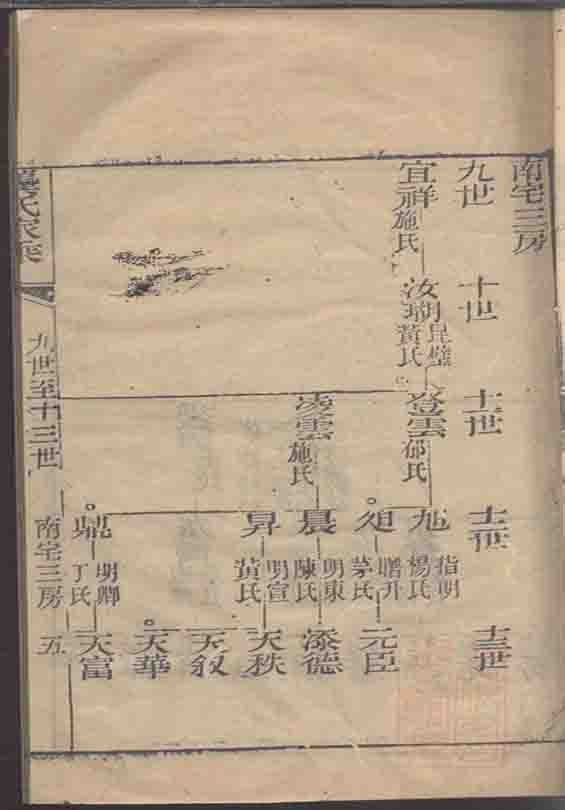 南宅三房
九世
十世
十一世
十二世
十三世
宜祥
施氏
汝瑚
昆璧
黃氏
登雲
邵氏
凌雲
施氏
旭
指明
楊氏
曙升
茅氏
晨
明東
陳氏
昇
明宣
黃氏
鼎
明卿
丁氏
元臣
添德
天秩
天叙
天華
天富
氏家乘
九世至十三世
南宅三房
五